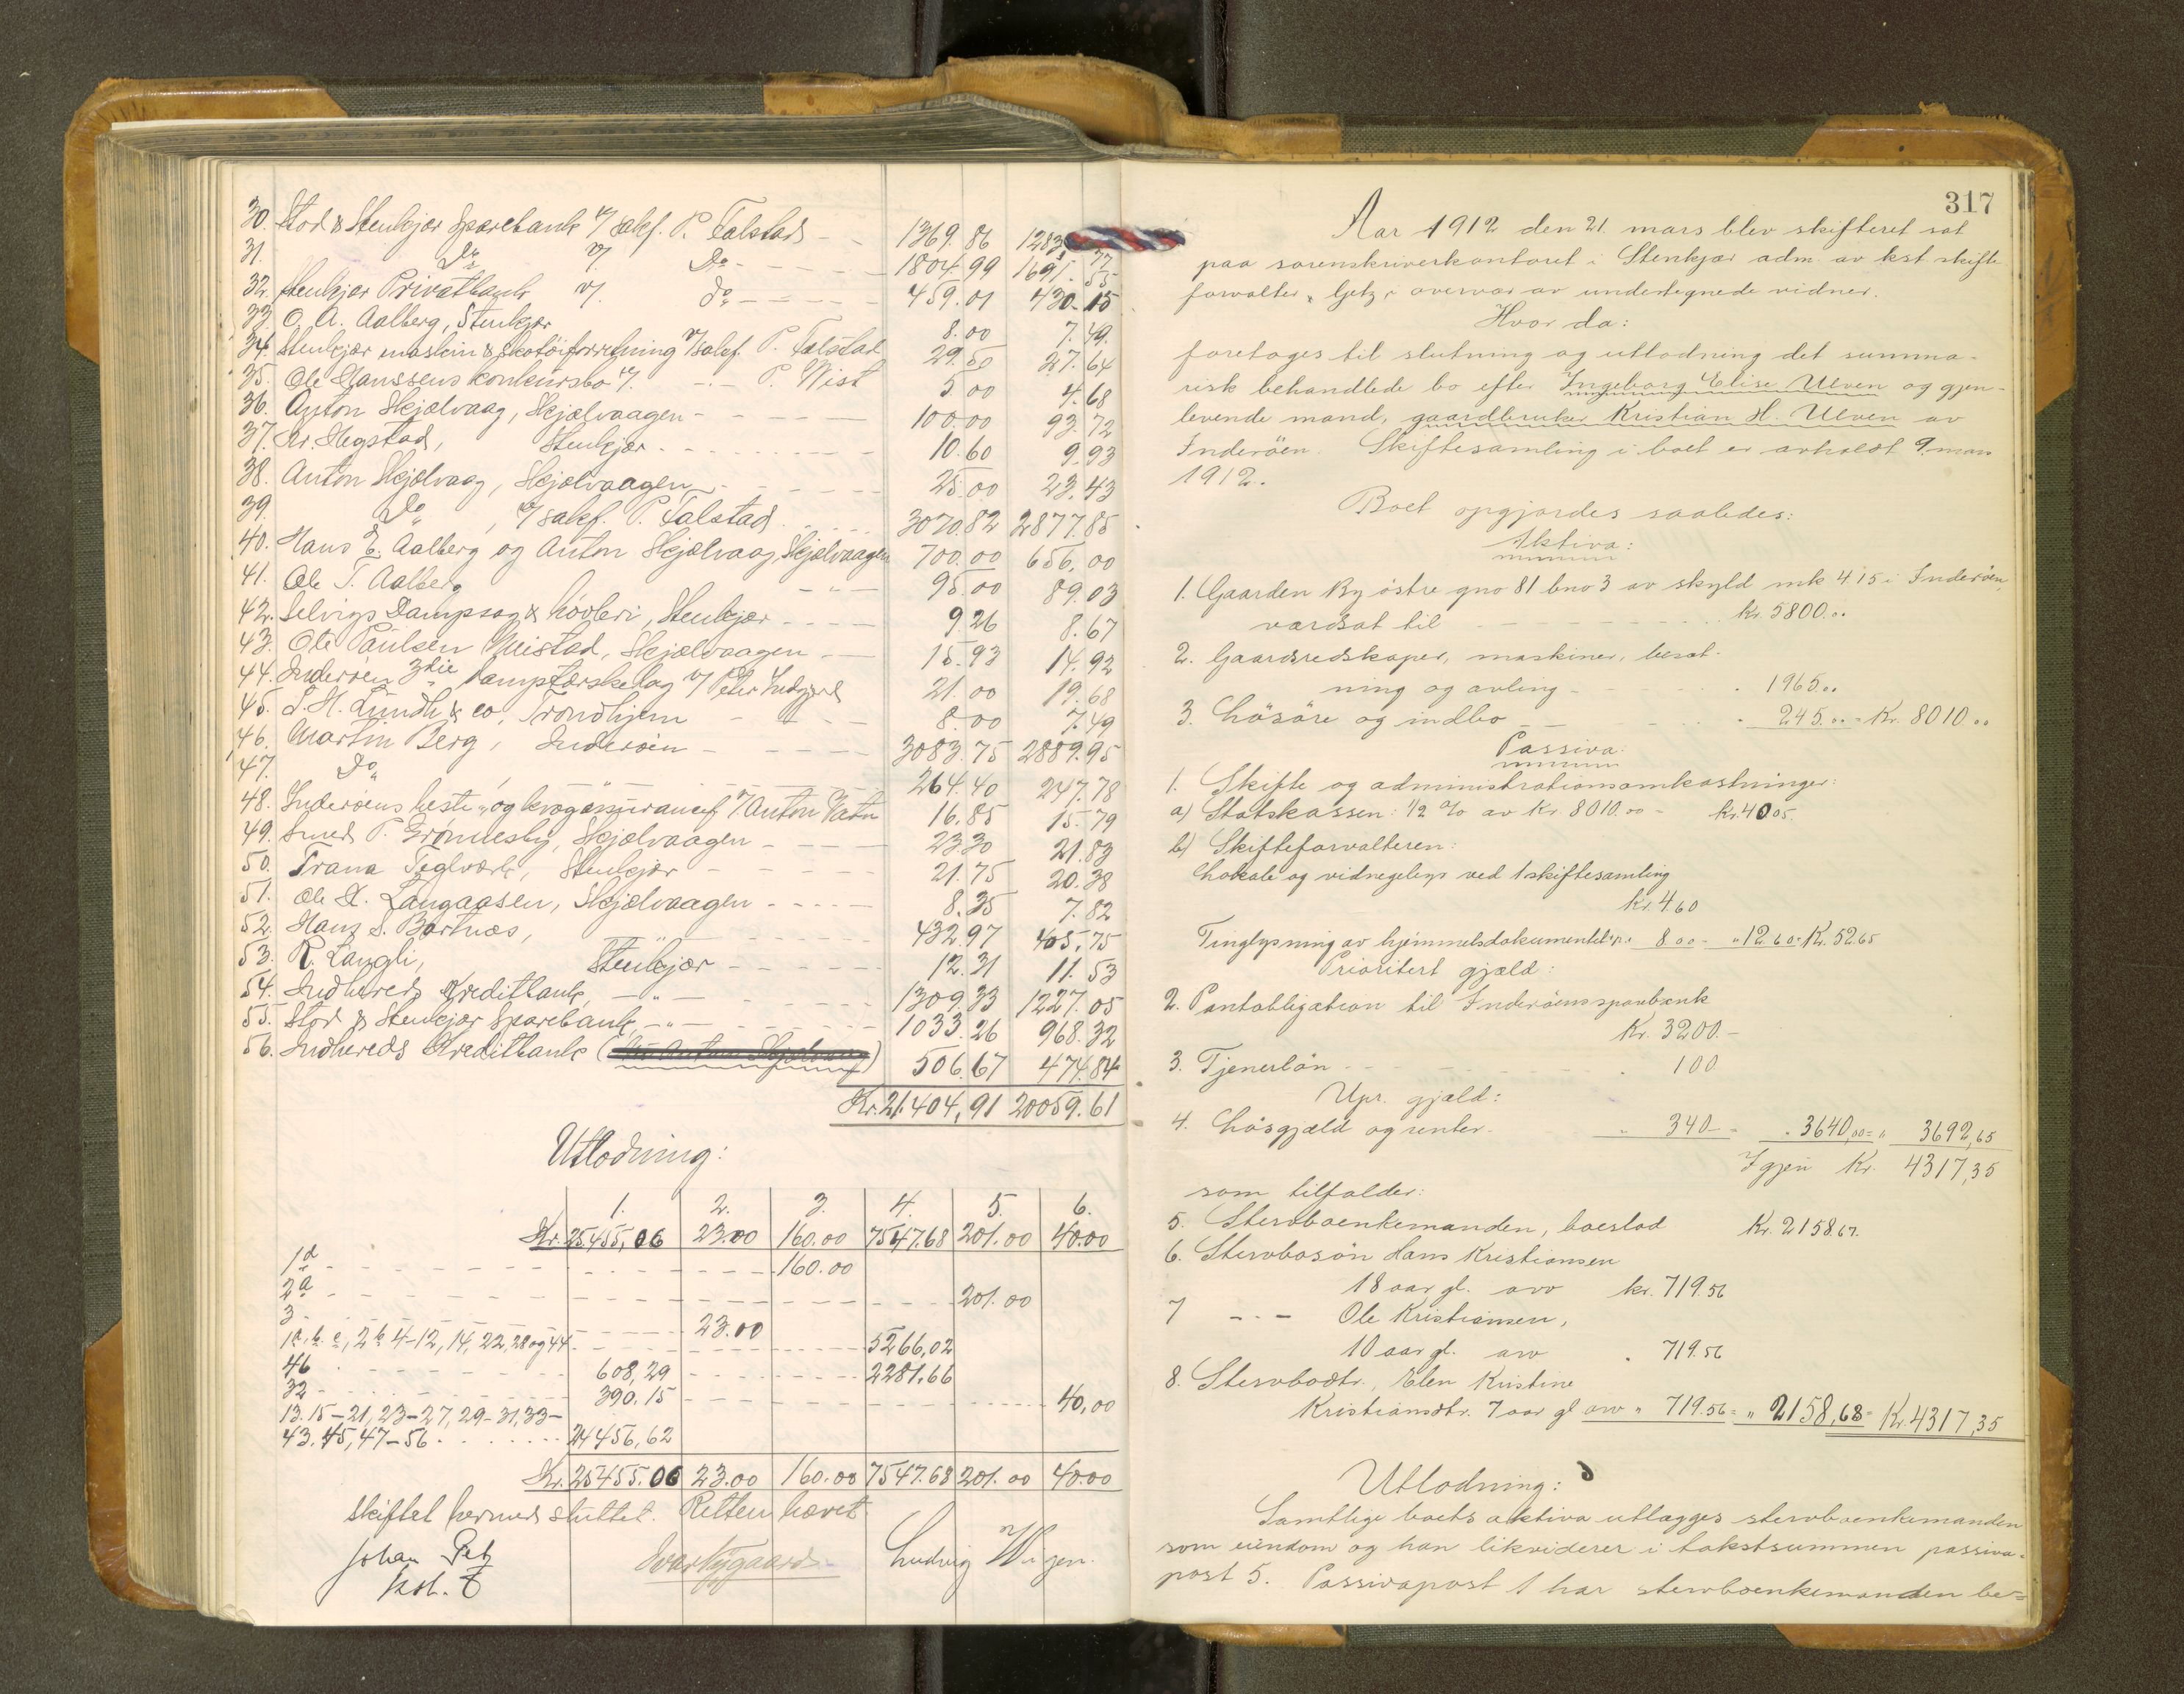 30. Stod & Stenkjær Sparebank v/ sakf. P. Talstad - - 1369.86 1283
31. Do v/. Do - - - - - 1804.99 1691.55
32. Stenkjær Privatbank v/. do - - - - - 459.01 430.15
33. O. A. Aalberg, Stenkjær 8.00 7.49.
34. Stenkjær maskin & skotöiforretning v/ sakf. P. Talstad 29.50 27.64
35. Ole Hanssens konkursbo v/. -.- P. Wist 5.00 4.68
36. Anton Skjælvaag, Skjælvaagen - - - - 100.00 93.72
37. Kr. Hegstad, Stenkjær - - - - - 10.60 9.93
38. Anton Skjælvaag, Skjælvaagen - - - - 25.00 23.43
39. Do , v/ sakf. P. Talstad - - - 3070.82 2877.85
40. Hans E. Aalberg og Anton Skjælvaag, Skjælvaagen 700.00 656.00
41. Ole T. Aalberg -"- 95.00 89.03
42. Selvigs Dampsag & hövleri, Stenkjær - - - - 9.26 8.67
43. Ole Paulsen Meistad, Skjælvaagen - - 15.93 14.92
44. Inderøen 3die Damptærskelag v/ Peter 21.00 19.68
45. S. H. Lundh & co, Trondhjem - - - - 8.00 7.49
46. Martin Berg, Inderøen - - - - - 3083.75 2889.95
47. Do - " - 264.40 247.78
48. Inderøens heste- og kvægassurancef. v/. Anton Vatn 16.85 15.79
49. Smed P. Grønnesby, Skjælvaagen - - - - 23.30 21.83
50. Trana Teglværk, Stenkjær - - - - - 21.75 20.38
51. Ole A. Langaasen, Skjælvaagen - - - - 8.35 7.82
52. Hans S. Bartnæs, " 432.97 405.75
53. R. Langli, Stenkjær - - - - - 12.31 11.53
54. Indhereds Kreditbank, -"- - - - 1309.33 1227.05
55. Stod & Stenkjær Sparebank, -"- - - - - 1033.26 968.32
56. Indhereds Kreditbank ( ) 506.67 474.84
Kr. 21.404,91 20059.61
Utlodning:
1. 2. 3. 4. 5. 6.
Kr. 25.455,06 23.00 160.00 7547.68 201.00 40.00
1d - - - - - - 160.00
2a - - - - - - 201.00
3 - - - - - 23.00
1a, b. c, 2b 4-12, 14, 22, 28 og 44 - - - 5266,02
46 - - - - 608,29 - - - - 2281.66
32 - - - - 390.15 - - - - 40,00
13. 15-21, 23-27, 29-31, 33-
43. 45, 47-56 - - - 24456,62
Kr. 25455.06 23.00 160.00 7547.68 201.00 40.00
Skiftet hermed sluttet. Retten hævet.
Johan Getz
kst.
Ludvig Wigen.
317
Aar 1912 den 21. mars blev skifteret sat
paa sorenskriverkontoret i Stenkjær adm. av kst. skifte
forvalter Getz i overvær av undertegnede vidner.
Hvor da:
foretoges til slutning og utlodning det summa-
risk behandlede bo efter Ingeborg Elise Ulven og gjen-
levende mand, gaardbruker Kristian H. Ulven av
Inderöen. Skiftesamling i boet er avholdt 9. mars
1912.
Boet opgjordes saaledes:
Aktiva:
1. Gaarden By östre gno 81 bno 3 av skyld mk 4.15 i Inderöen,
værdsat til - - - - - Kr. 5800.00
2. Gaardsredskaper, maskiner, besæt-
ning og avling - - - - " 1965.00
3. Lösöre og indbo - - - - " 245.00 = Kr. 8010.00
Passiva:
1. Skifte og administrationsomkostninger:
a) Statskassen: 1/2 % av Kr. 8010.00 - kr. 40 05.
b) Skifteforvalteren:
Lokale og vidnegebyr ved 1 skiftesamling
kr. 4.60
Tinglysning av hjemmelsdokumentet " 8 00 - " 12.60 = Kr. 52.65
Prioritert gjæld:
2. Pantobligation til Inderöens sparebank
Kr. 3200.-
3. Tjenerlön - - - - - " 100
Upr. gjæld:
4. Lösgjæld og renter - " 340 - = " 3640,00 = " 3692,65
Igjen Kr. 4317,35
som tilfalder:
5. Stervboenkemanden, boeslod Kr. 2158.67.
6. Stervbosön Hans Kristiansen
18 aar gl. arv kr. 719.56
7 - " - Ole Kristiansen,
10 aar gl. arv " 719.56
8. Stervbodtr. Elen Kristine
Kristiansdtr. 7 aar gl arv " 719.56 = " 2158,68 = Kr. 4317,35
Utlodning:
Samtlige boets aktiva utlægges stervboenkemanden
som eiendom og han likviderer i takstsummen passiva-
post 5. Passivapost 1 har stervboenkemanden be=